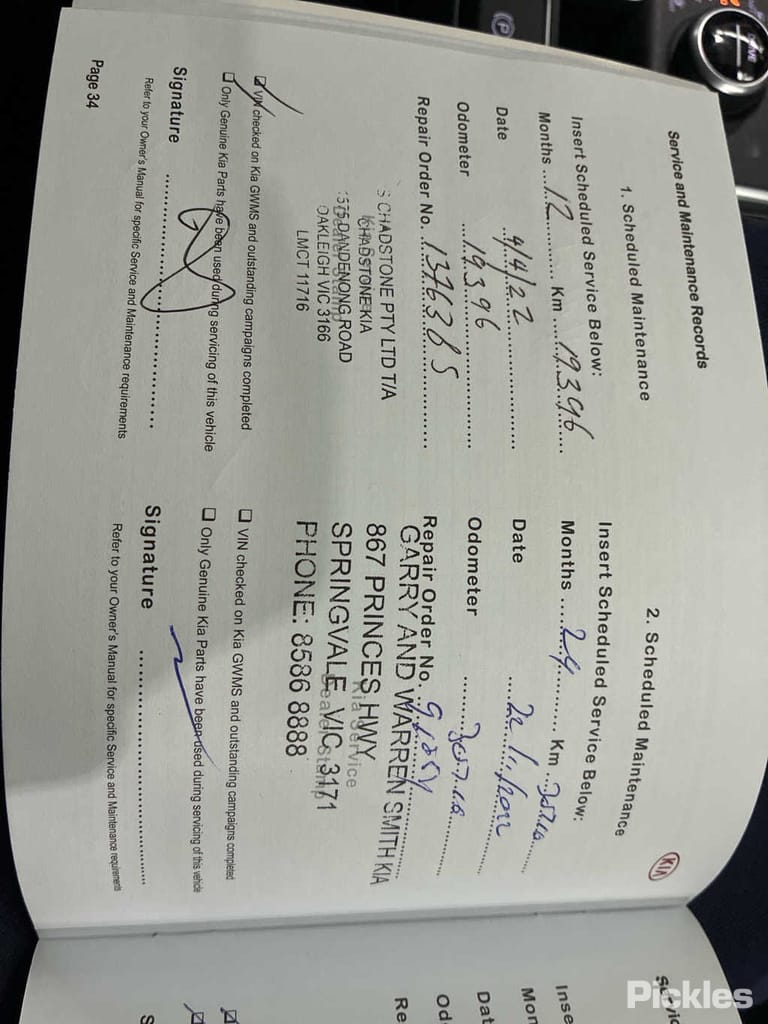 Service and Maintenance Records
KIA
1. Scheduled Maintenance
Insert Scheduled Service Below:
Months ...12........... Km ...19396...
Date ..4/4/22................
Odometer .....19396.............
Repair Order No. ..1376385..........
S CHADSTONE PTY LTD T/A
CHADSTONE KIA
Dealer Stamp
1575 DANDENONG ROAD
OAKLEIGH VIC 3166
LMCT 11716
VIN checked on Kia GWMS and outstanding campaigns completed
Only Genuine Kia Parts have been used during servicing of this vehicle
Signature ........................................
Refer to your Owner's Manual for specific Service and Maintenance requirements
Page 34
2. Scheduled Maintenance
Insert Scheduled Service Below:
Months ....24.......... Km
Date
Odometer
Repair Order No.
GARRY AND WARREN SMITH KIA
Kia Service
867 PRINCES HWY
Dealer Stamp
SPRINGVALE VIC 3171
PHONE: 8586 8888
VIN checked on Kia GWMS and outstanding campaigns completed
Only Genuine Kia Parts have been used during servicing of this vehicle
Signature ........................................
Refer to your Owner's Manual for specific Service and Maintenance requirements
Servic
Inse
Mon
Dat
Od
Re
S
Pickles